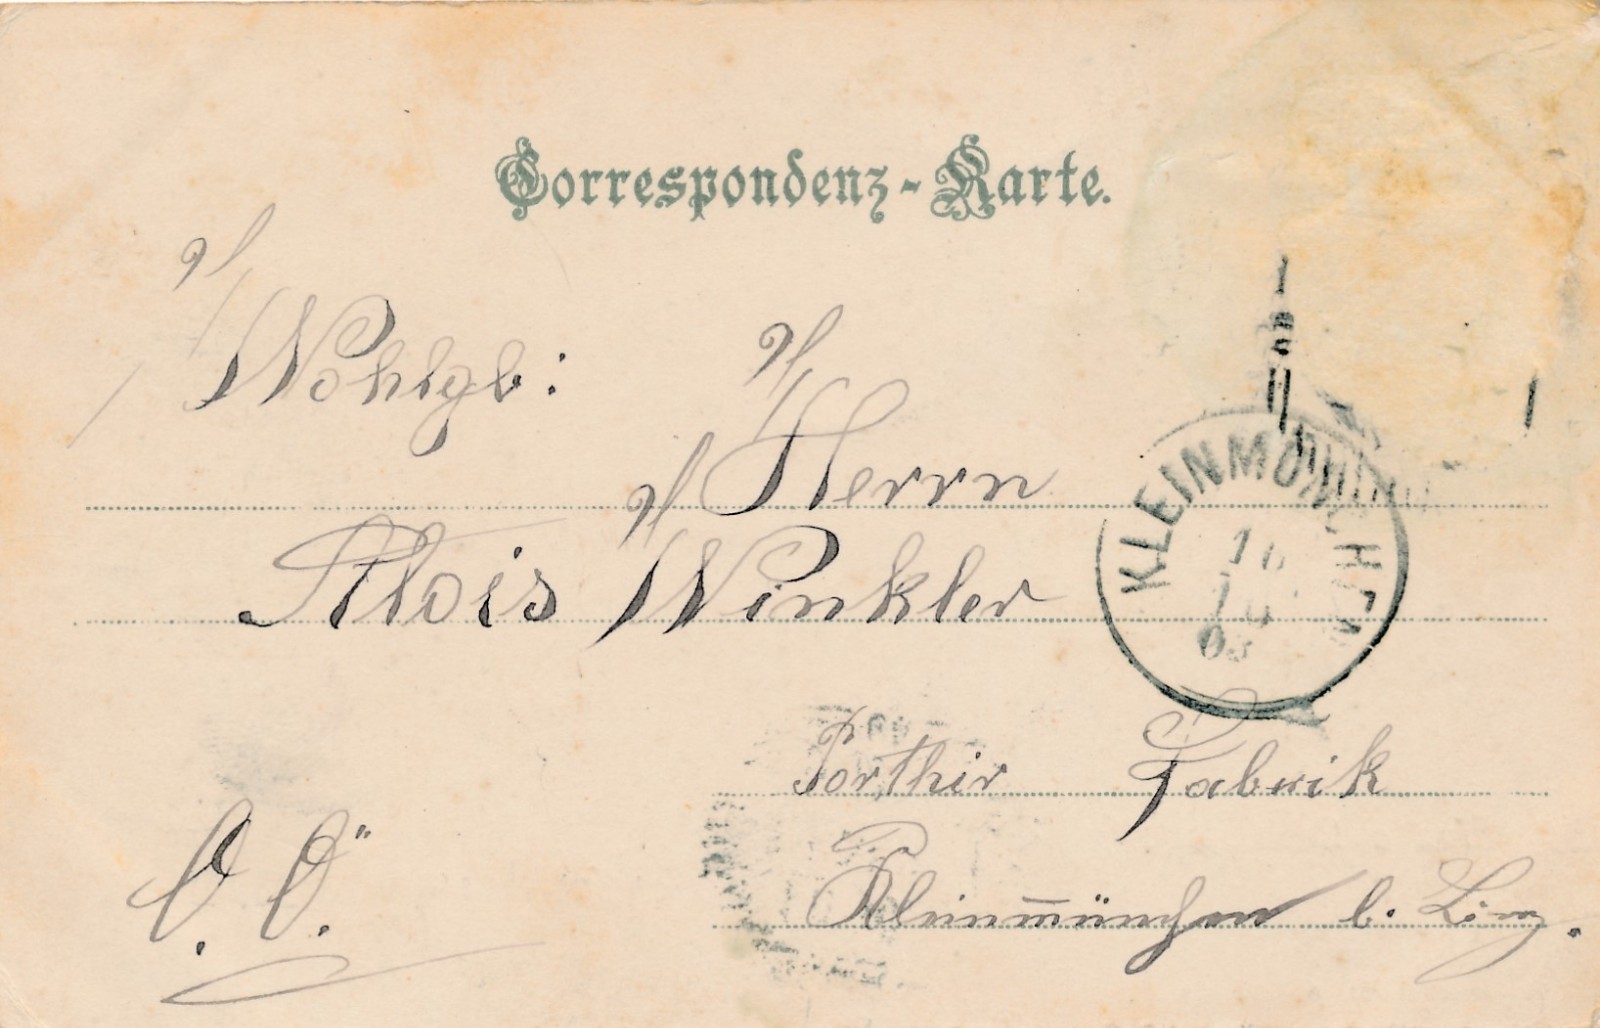 Correspondenz-Karte.
Wohlgb:
Herrn
Alois Winkler
KLEINMÜNCHEN
10
03
Porthir Fabrik
Kleinmünchen b. Linz.
O. Ö.